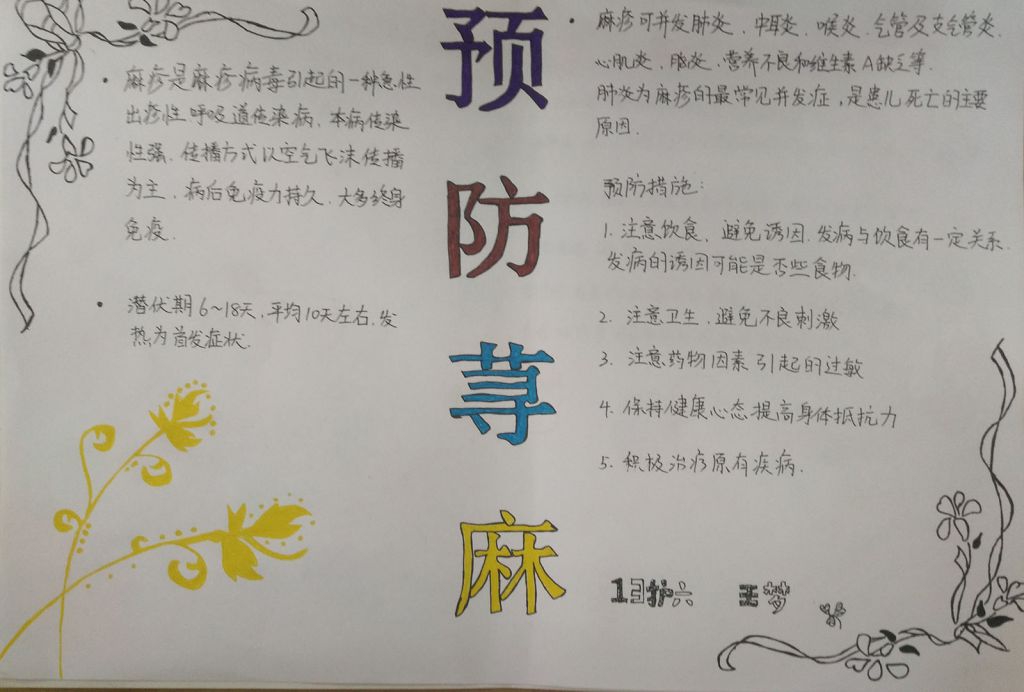 预防荨麻
麻疹是麻疹病毒引起的一种急性
出疹性呼吸道传染病.本病传染
性强.传播方式以空气飞沫传播
为主.病后免疫力持久.大多终身
免疫.
潜伏期6~18天,平均10天左右.发
热为首发症状.
麻疹可并发肺炎.中耳炎.喉炎.气管及支气管炎.
心肌炎.脑炎.营养不良和维生素A缺乏等.
肺炎为麻疹的最常见并发症,是患儿死亡的主要
原因.
预防措施:
1.注意饮食,避免诱因.发病与饮食有一定关系.
发病的诱因可能是否些食物.
2.注意卫生,避免不良刺激
3.注意药物因素引起的过敏
4.保持健康心态.提高身体抵抗力
5.积极治疗原有疾病.
护六 王梦